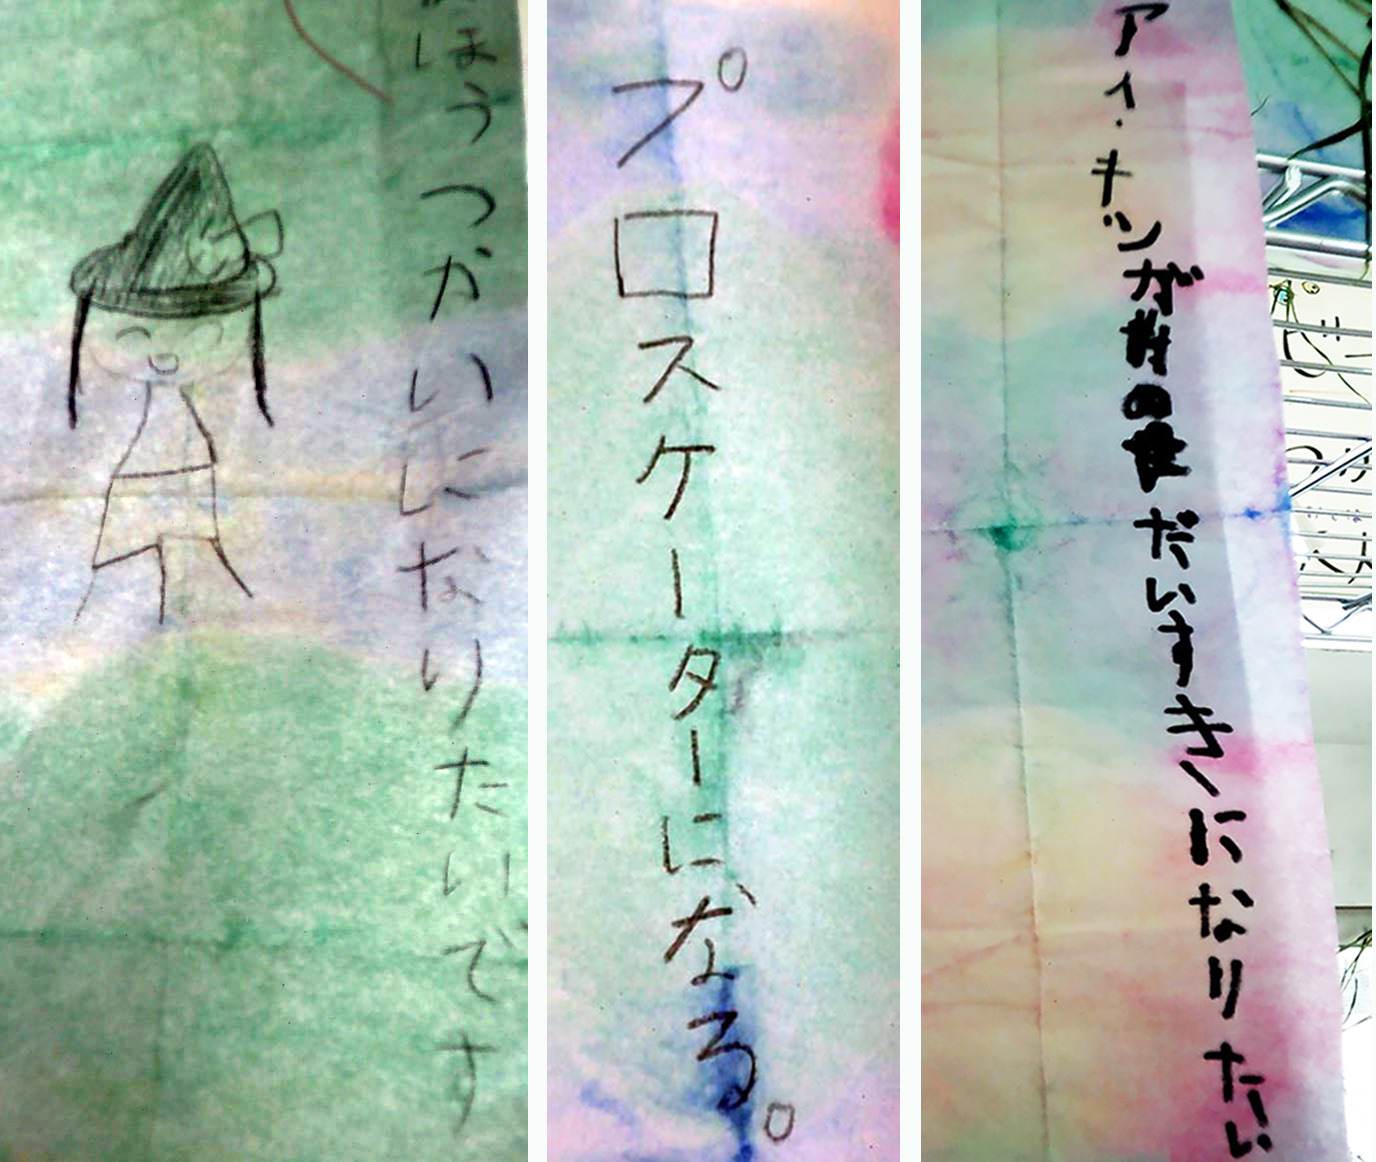 ほうつかいになりたいです
プロスケーターになる。
アイ・キッンがだいすきになりたい